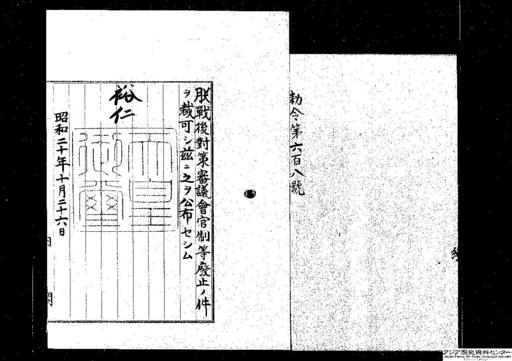 勅令第六百八號
朕戰後對策審議會官制等廢止ノ件
ヲ裁可シ茲ニ之ヲ公布セシム
裕仁
天皇御璽
昭和二十年十月二十六日
内閣
アジア歴史資料センター